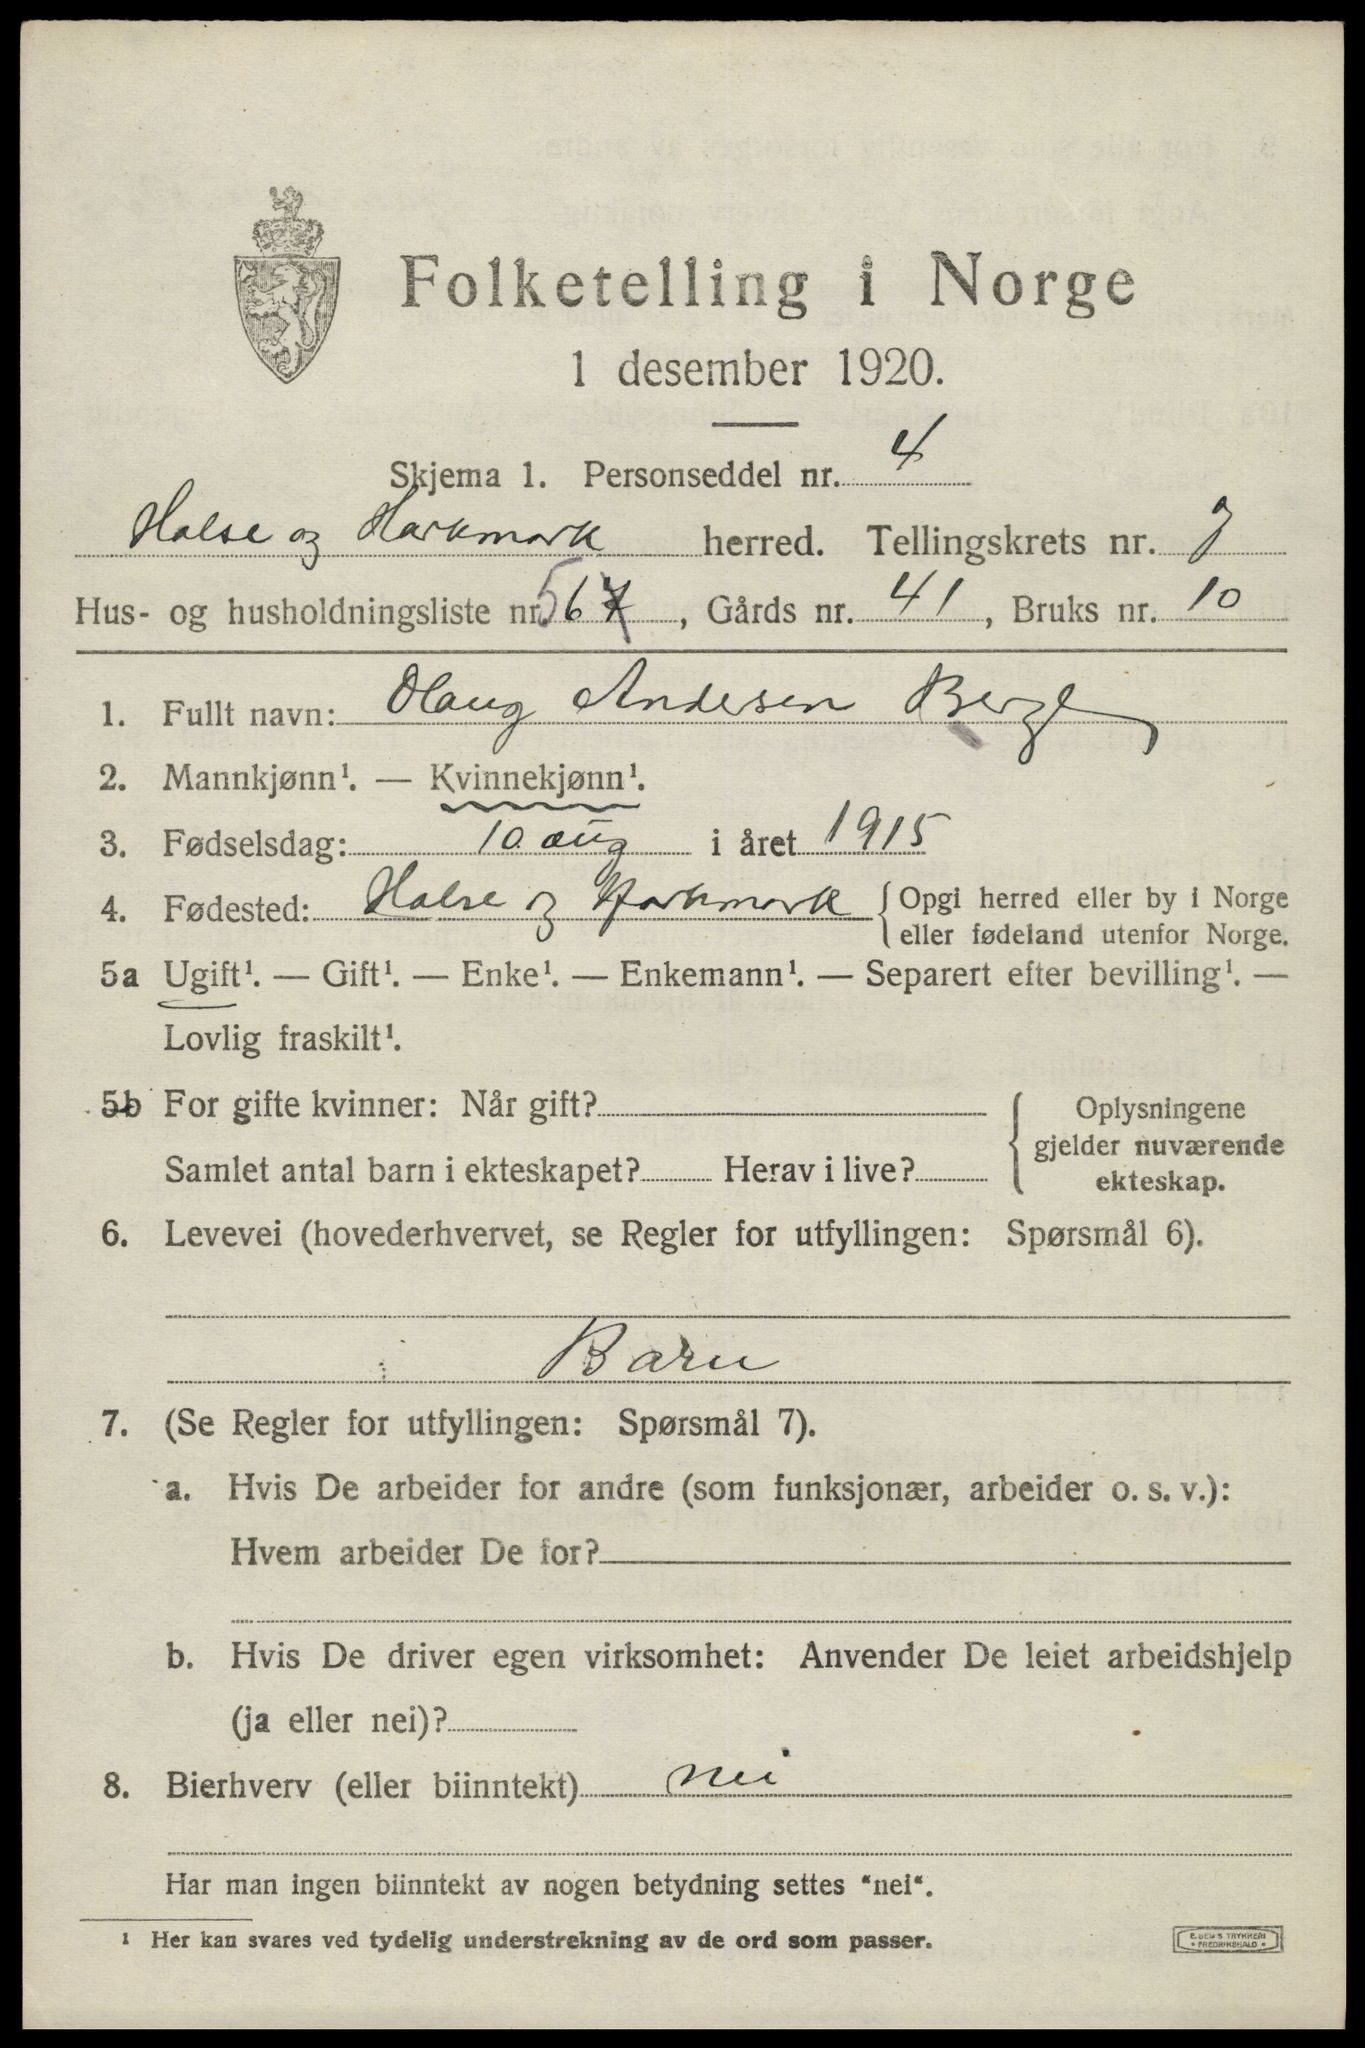 Folketelling i Norge
1 desember 1920.
Skjema 1. Personseddel nr. 4
Halse og Harkmark herred. Tellingskrets nr. 7
Hus- og husholdningsliste nr. 56 , Gårds nr. 41 , Bruks nr. 10
1. Fullt navn: Olaug Andersen Berge
2. Mannkjønn¹. — Kvinnekjønn¹.
3. Fødselsdag: 10 aug i året 1915
4. Fødested: Halse og Harkmark { Opgi herred eller by i Norge
eller fødeland utenfor Norge.
5a Ugift¹. — Gift¹. — Enke¹. — Enkemann¹. — Separert efter bevilling¹. —
Lovlig fraskilt¹.
5b For gifte kvinner: Når gift? { Oplysningene
gjelder nuværende
Samlet antal barn i ekteskapet? Herav i live?
ekteskap.
6. Levevei (hovederhvervet, se Regler for utfyllingen: Spørsmål 6).
Barn
7. (Se Regler for utfyllingen: Spørsmål 7).
a. Hvis De arbeider for andre (som funksjonær, arbeider o. s. v.):
Hvem arbeider De for?
b. Hvis De driver egen virksomhet: Anvender De leiet arbeidshjelp
(ja eller nei)?
8. Bierhverv (eller biinntekt) nei
Har man ingen biinntekt av nogen betydning settes "nei".
¹ Her kan svares ved tydelig understrekning av de ord som passer.
E. SEM'S TRYKKERI
• FREDRIKSHALD •